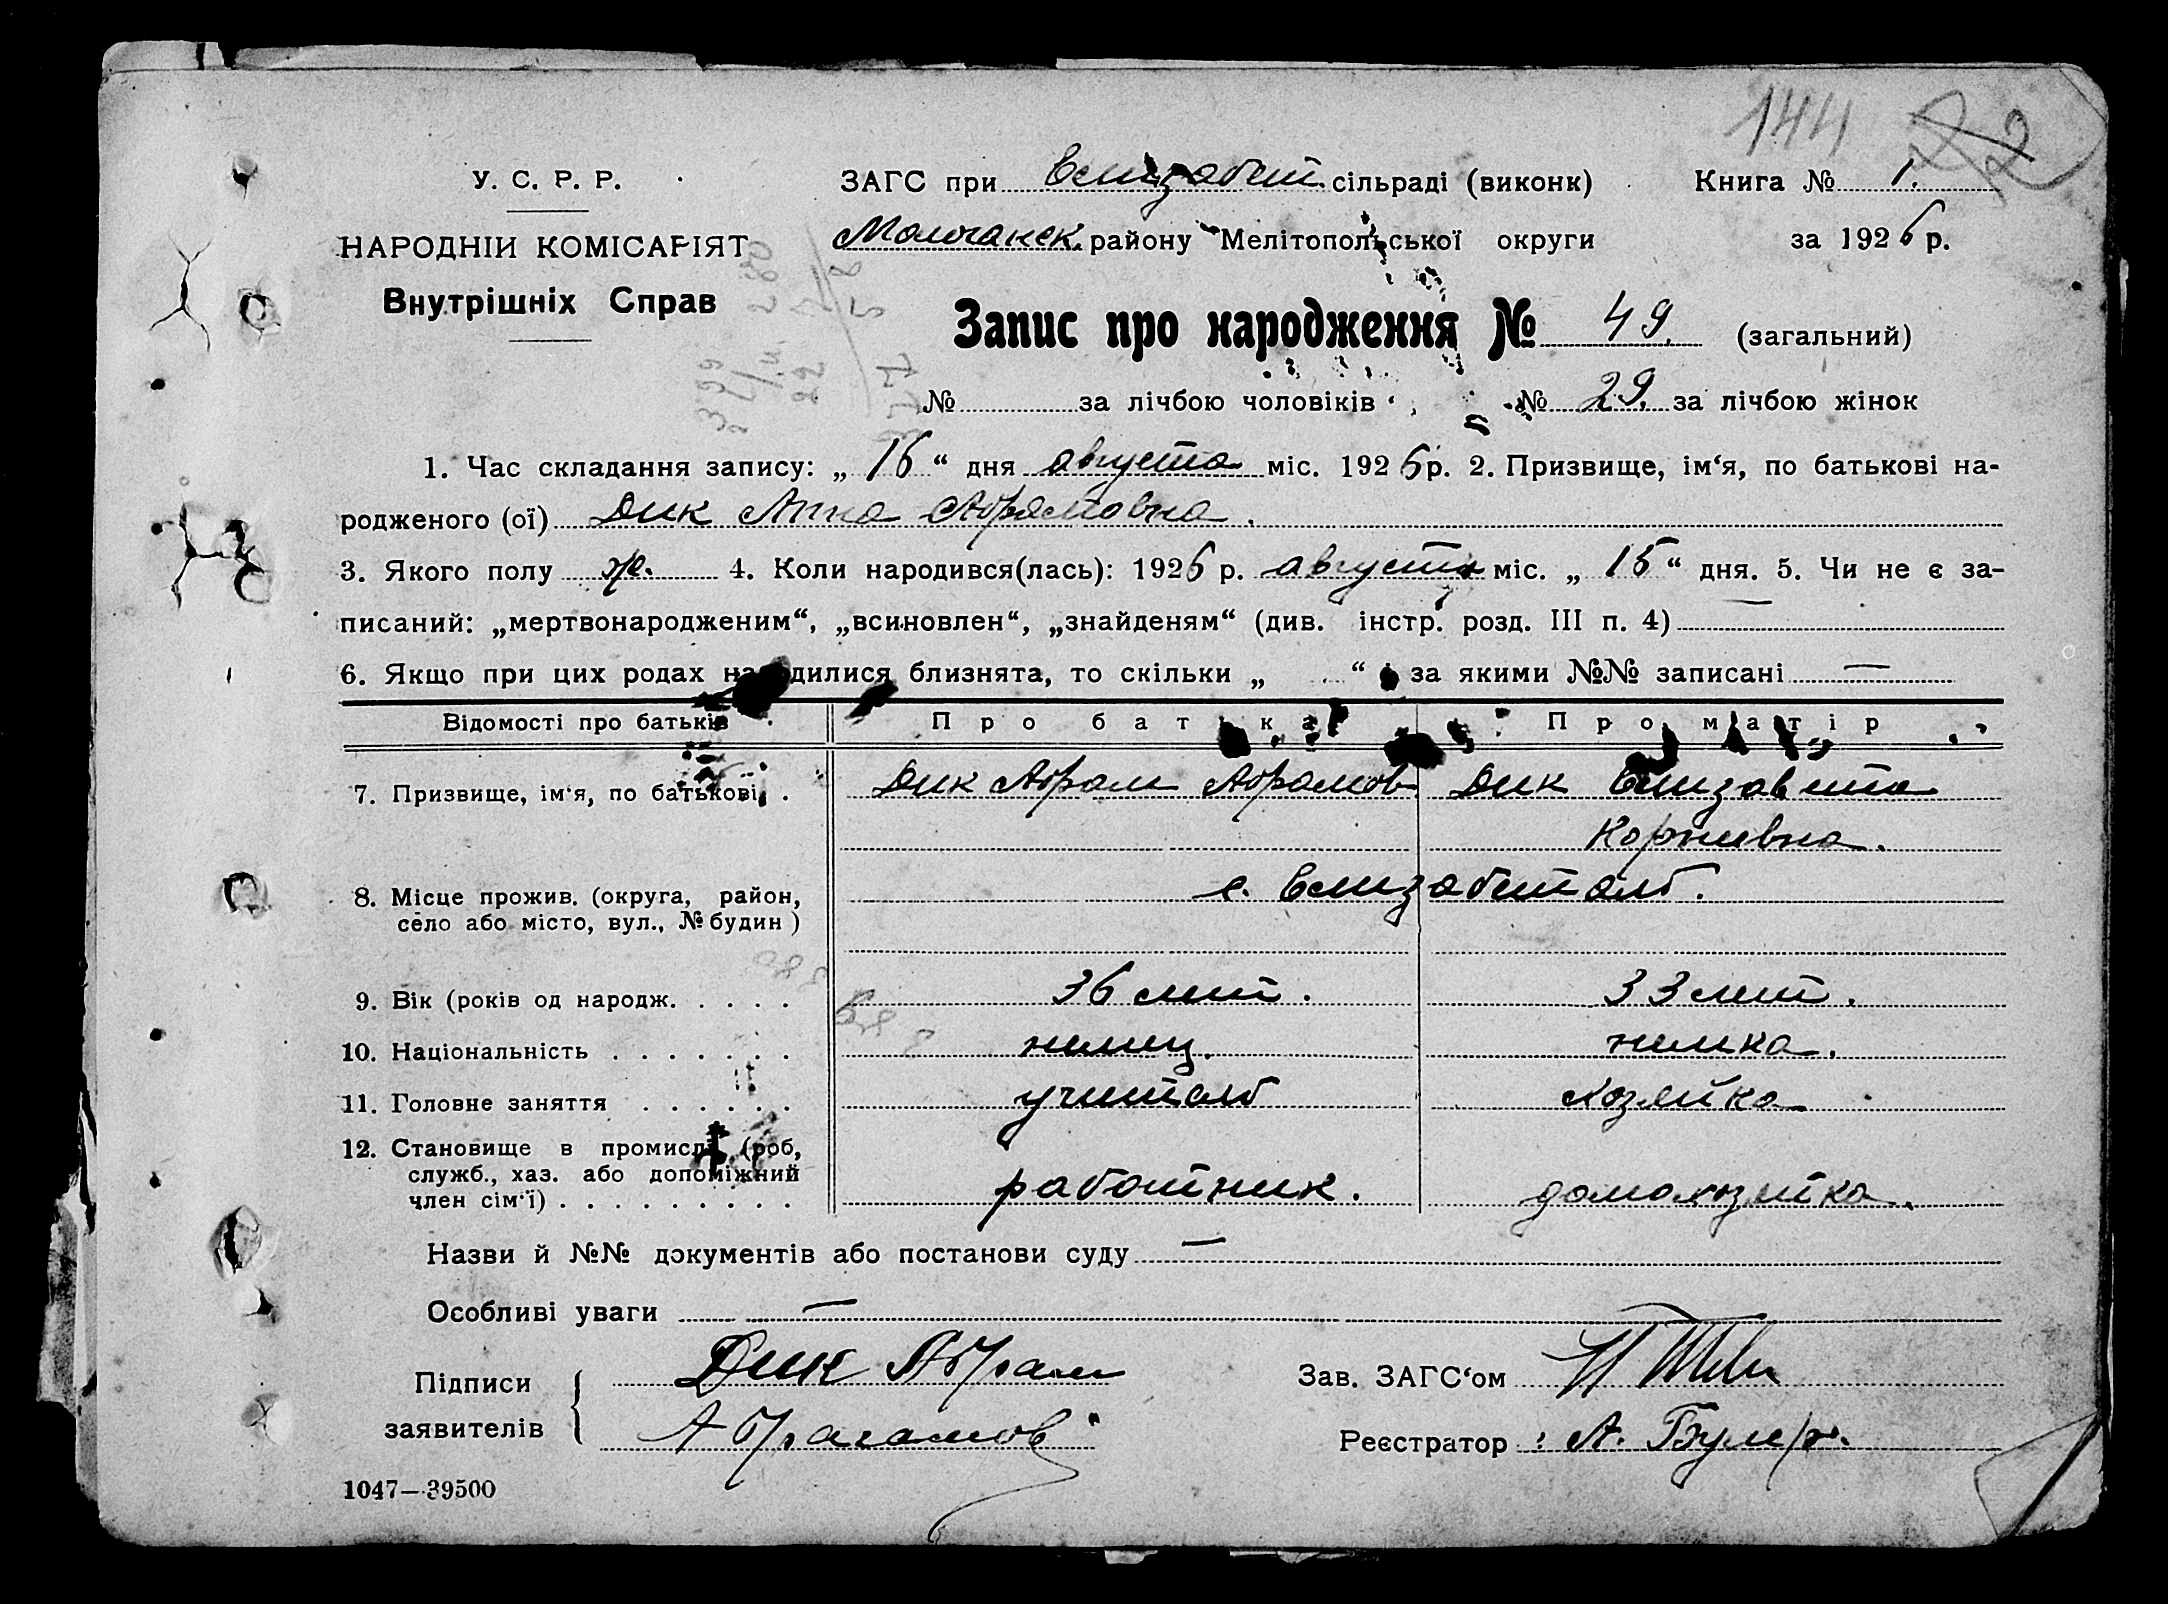 144 22
У. С. Р. Р.
НАРОДНІЙ КОМІСАРІЯТ
Внутрішніх Справ
ЗАГС при Елизабет. сільраді (виконк) Книга № 1.
Молочанск. району Мелітопольської округи за 1926 р.
Запис про народження № 49. (загальний)
№ за лічбою чоловіків № 29. за лічбою жінок
1. Час складання запису: „ 16 “ дня августа міс. 1926 р. 2. Призвище, ім‘я, по батькові на-
родженого (ої) Дик Анна Абрамовна.
3. Якого полу ж. 4. Коли народився(лась): 1926 р. августа міс. „ 15 “ дня. 5. Чи не є за-
писаний: „мертвонародженим“, „всиновлен“, „знайденям“ (див. інстр. розд. III п. 4) —
6. Якщо при цих родах народилися близнята, то скільки „ “ і за якими №№ записані —
Відомості про батьків Про батька Про матір
7. Призвище, ім‘я, по батькові Дик Абрам Абрамов Дик Елизавета
Корнивна.
8. Місце прожив. (округа, район, с. Елизабетталь.
село або місто, вул., № будин )
9. Вік (років од народж. . . . . 36 лет. 33 лет.
10. Національність . . . . . . . немец. немка.
11. Головне заняття . . . . . . учитель хозяйка
12. Становище в промислі (роб,
служб., хаз. або допоміжний
член сім‘ї) . . . . . . . . . работник. домохозяйка.
Назви й №№ документів або постанови суду —
Особливі уваги —
Підписи Дик Абрам Зав. ЗАГС‘ом
заявителів Абрагамов Реєстратор А.
1047—39500